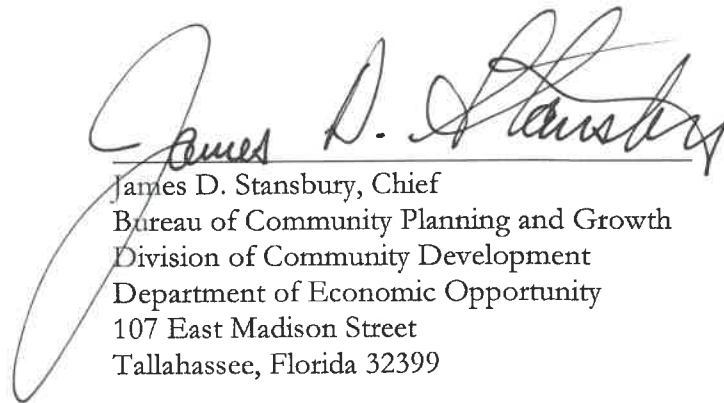 James D. Stansbury
James D. Stansbury, Chief
Bureau of Community Planning and Growth
Division of Community Development
Department of Economic Opportunity
107 East Madison Street
Tallahassee, Florida 32399